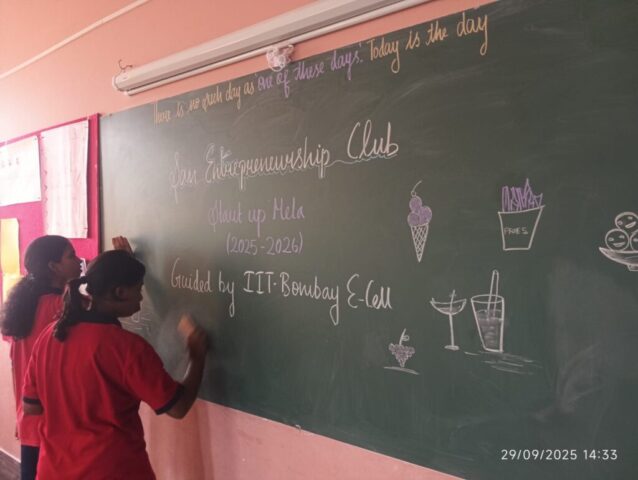 There is no such day as 'One of these days'. Today is the day
San Entrepreneurship Club
Start up Mela
(2025-2026)
Guided by IIT-Bombay E-Cell
FRIES
29/09/2025 14:33